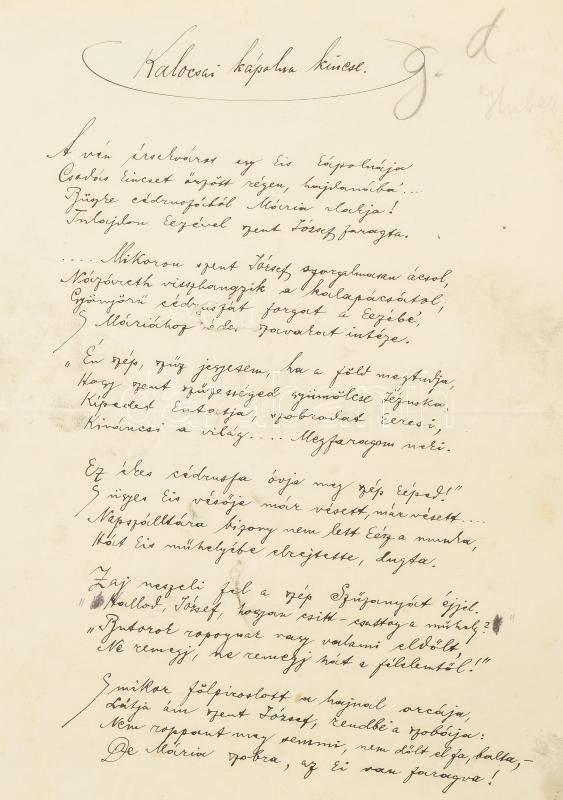 Kalocsai kápolna kincse.
g. d
Huber
A vén érsekváros egy kis kápolnája
Csodás kincset őrzött régen, hajdanába'....
Büszke cédrusfából Mária alakja!
Tulajdon kezével szent József faragta.
.... Mikoron szent József szorgalmasan ácsol,
Názáreth visszhangzik a kalapácsától;
Gyönyörű cédrusfát forgat a kezébe',
S Máriához édes szavakat intéze.
„Én szép, szűz jegyesem, ha a föld megtudja,
Hogy szent szüzességed gyümölcse Jézuska,
Képedet kutatja, szobrodat keresi,
Kiváncsi a világ.... Megfaragom neki.
Ez ékes cédrusfa óvja meg szép képed!"
S ügyes kis vésője már vésett, már vésett....
Napszálltára bizony nem lett kész a munka,
Hát kis műhelyébe elrejtette, dugta.
Zaj neszeli fel a szép Szűzanyát éjjel.
„Hallod, József, hogyan csitt-csattog a műhely?"
„Butorok ropognak vagy valami eldőlt,
Ne remegj, ne remegj hát a félelemtől!"
S mikor fölpiroslott a hajnal orcája,
Látja ám szent József, rendbe' a szobája:
Nem roppant meg semmi, nem dőlt el fa, balta,-
De Mária szobra, az ki van faragva!